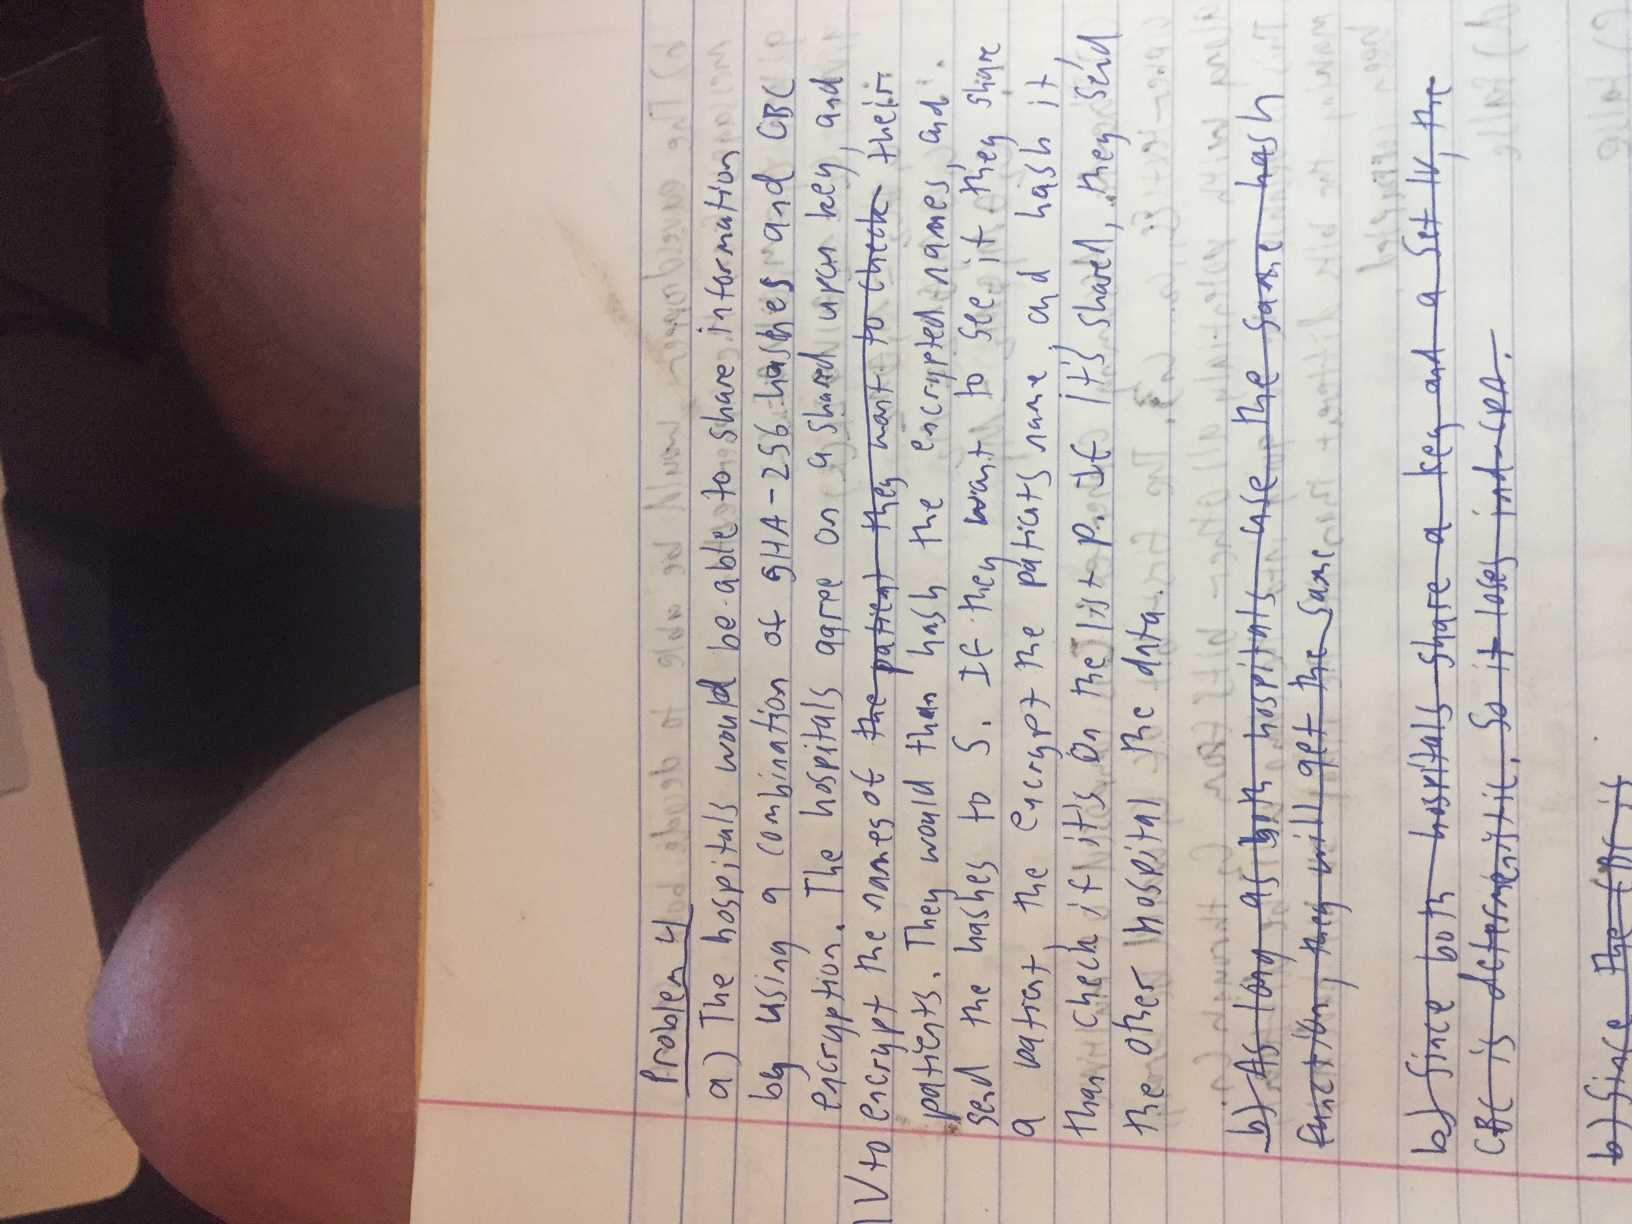 Problem 4
a) The hospitals would be able to share information
by using a combination of SHA-256 hashes and CBC
encryption. The hospitals agree on a shared upon key, and
IV to encrypt the names of the patient they want to check their
patients. They would than hash the encrypted names, and
send the hashes to S. If they want to see if they share
a patient, the encrypt the patients name, and hash it,
than check if it's on the list P. If it's shared, they send
the other hospital the data.
b) As long as both hospitals use the same hash
function, they will get the same
b) Since both hospitals share a key and a set IV, the
CBC is determenistic. So it loses ind-CPA.
b) Since the CBC is